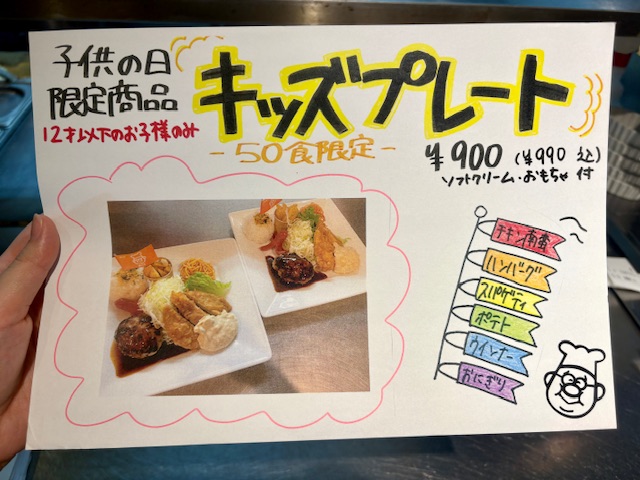 子供の日
限定商品
12才以下のお子様のみ
キッズプレート
-50食限定-
¥900 (¥990 込)
ソフトクリーム・おもちゃ 付
チキン南蛮
ハンバーグ
スパゲティ
ポテト
ウインナー
おにぎり